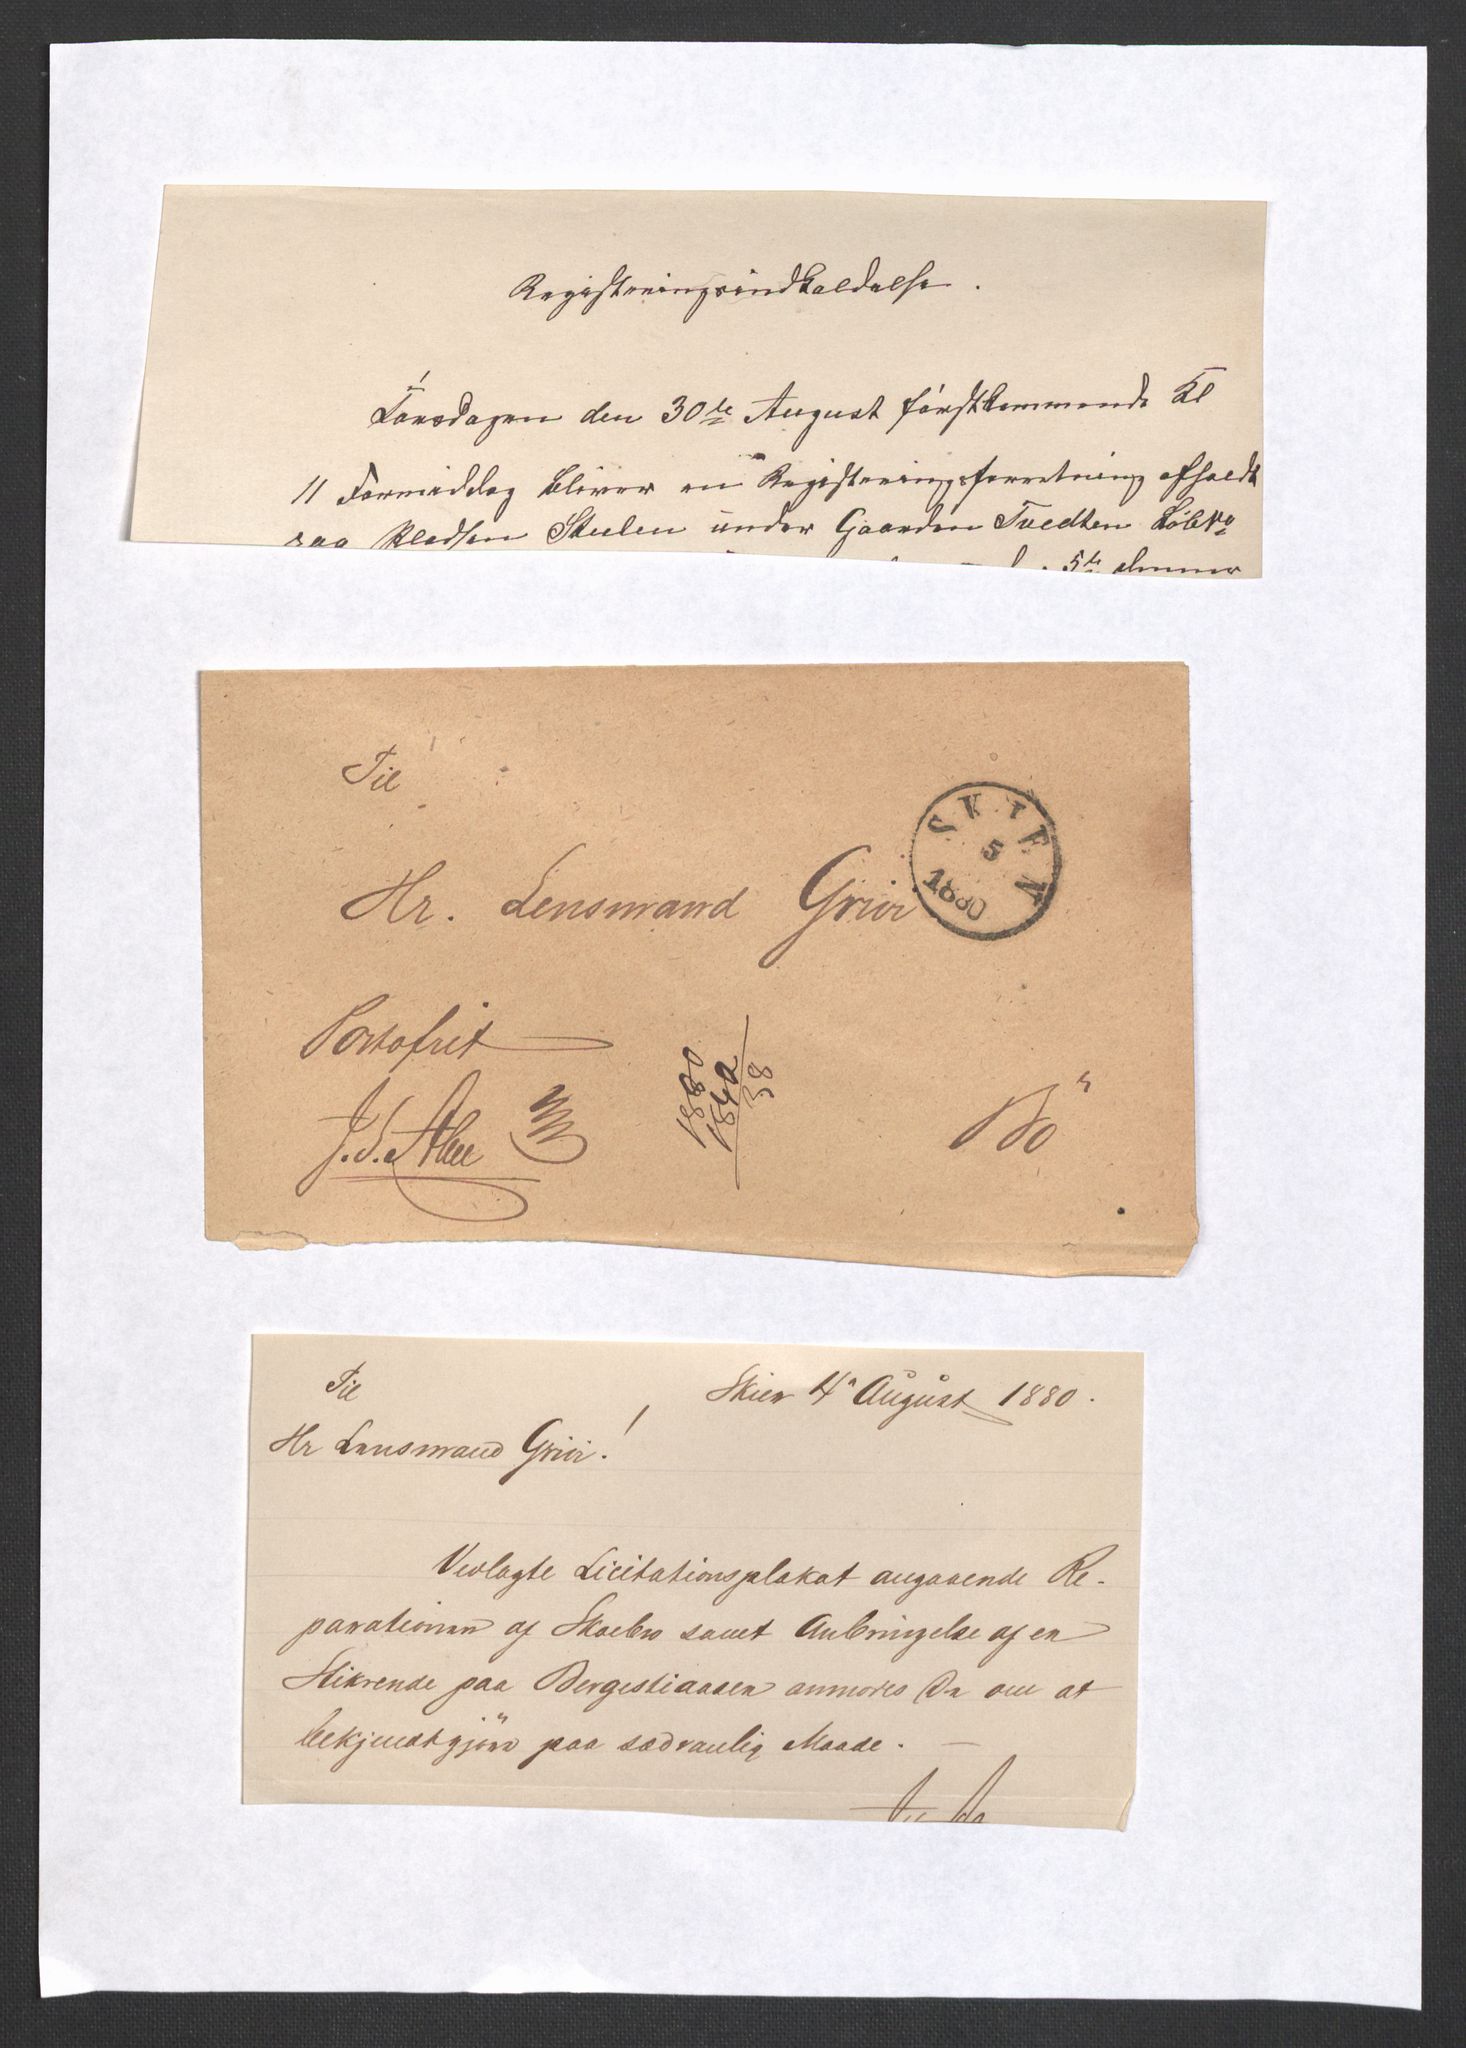 Registreringsindkaldelse.
Torsdagen den 30te August førstkommende Kl
11 Formiddag bliver en Registreringsforretning afholdt
paa Pladsen Stulen under Gaarden Tvedten Løbno
5te
Til
Hr. Lensmand Grivi
SKIEN
5
1880
Portofrit
J. S. Aall
1880
1842
38
Bö
Til
Skien 4 August 1880.
Hr Lensmand Grivi!
Vedlagte Licitationsplakat angaaende Re-
parationen af Skoebro samt Anbringelse af en
Stikrende paa Bergestiaasen anmodes De om at
bekjendtgjöre paa sædvanlig Maade. —